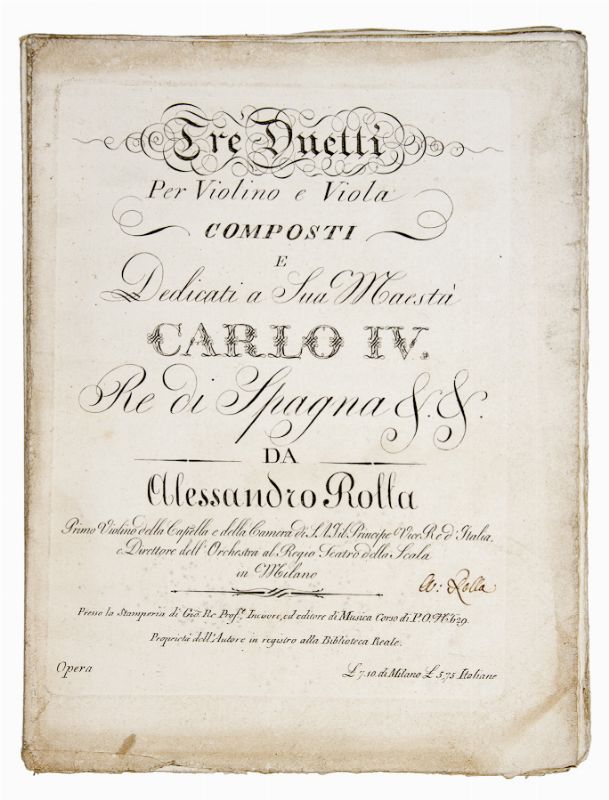 Trè Duetti
Per Violino e Viola
COMPOSTI
E
Dedicati a Sua Maestà
CARLO IV.
Re di Spagna &. &.
DA
Alessandro Rolla
Primo Violino della Capella e della Camera di S.A.I. il Principe Vice Re d'Italia,
e Direttore dell'Orchestra al Regio Teatro della Scala
in Milano
A: Rolla
Presso la Stamperia di Gio. Re Prof.e Incisore, ed editore di Musica Corso di P.O. N. 629.
Proprietà dell'Autore in registro alla Biblioteca Reale.
Opera
£ 7.10. di Milano £ 5,75 Italiane